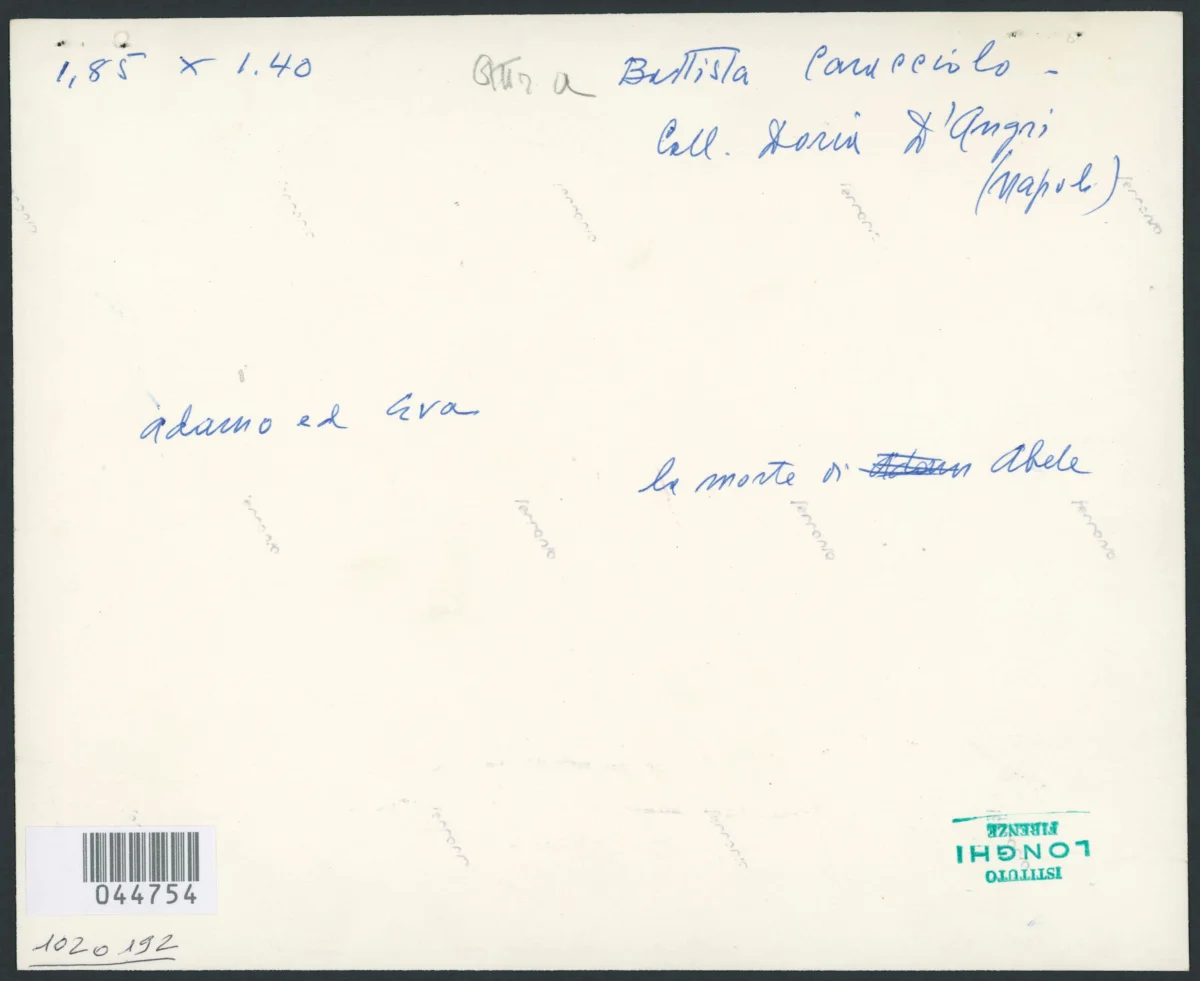 1,85 x 1.40
Attr. a Battista Caracciolo -
Coll. Doria D'Angri
(Napoli)
adamo ed Eva
la morte di Abele
ferrania ferrania ferrania ferrania ferrania
ferrania ferrania ferrania ferrania
ferrania ferrania
ISTITUTO
LONGHI
FIRENZE
044754
1020192